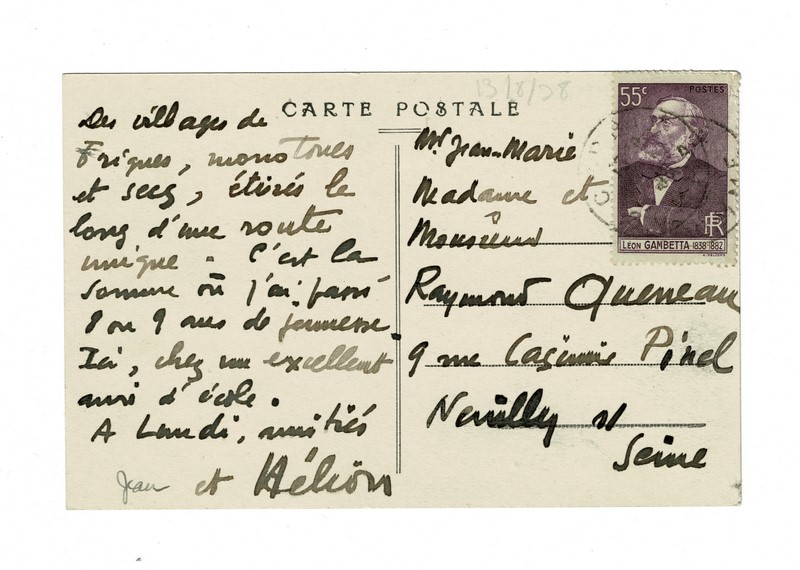 13/8/38
CARTE POSTALE
Des villages de
Friques, monotones
et secs, étirés le
long d'une route
unique. C'est la
Somme où j'ai passé
8 ou 9 ans de jeunesse.
Ici, chez un excellent
ami d'école.
A Lundi, amitiés
Jean et Hélion
Mr Jean-Marie
Madame et
Monsieur
Raymond Queneau
9 rue Casimir Pinel
Neuilly s/
Seine
55c
POSTES
RF
LÉON GAMBETTA 1838-1882